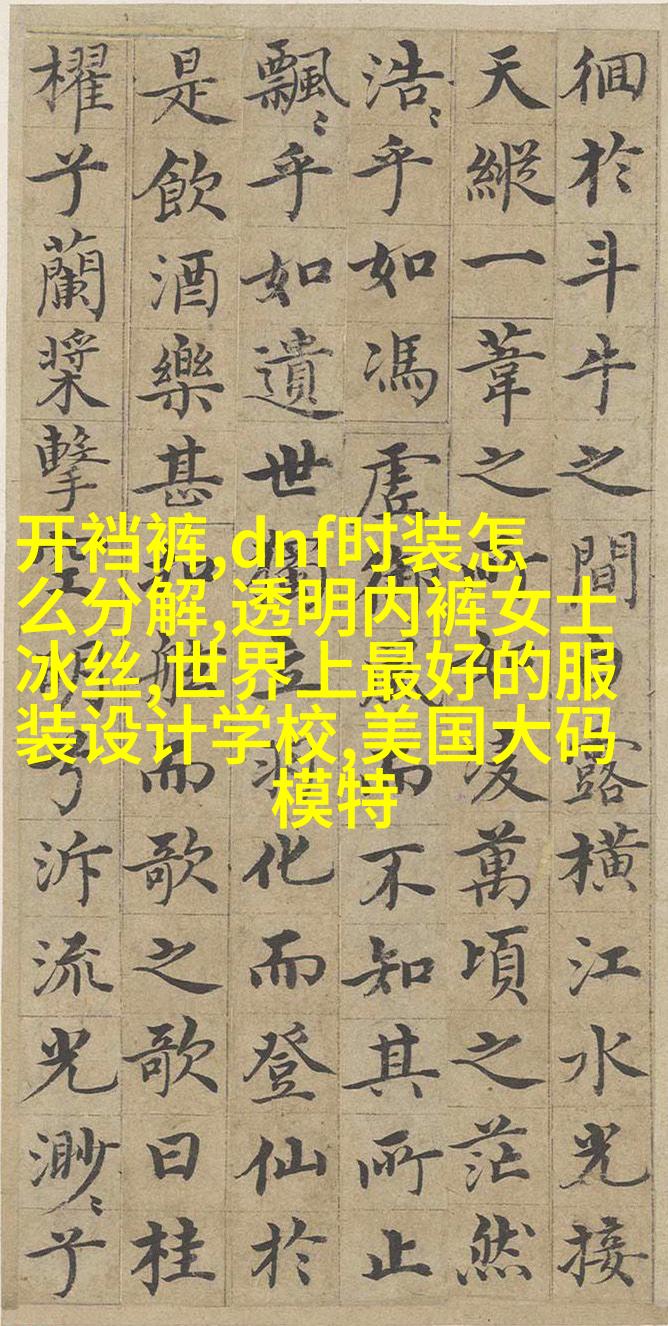 徊於斗牛之間白露橫江水光接
天縱一葦之所如凌萬頃之茫然
浩〻乎如馮虛御風而不知其所止
飄〻乎如遺世獨立羽化而登仙於
是飲酒樂甚扣舷而歌之歌曰桂
櫂兮蘭槳擊空明兮泝流光渺〻兮
开裆裤,dnf时装怎
么分解,透明内裤女士
冰丝,世界上最好的服
装设计学校,美国大码
模特